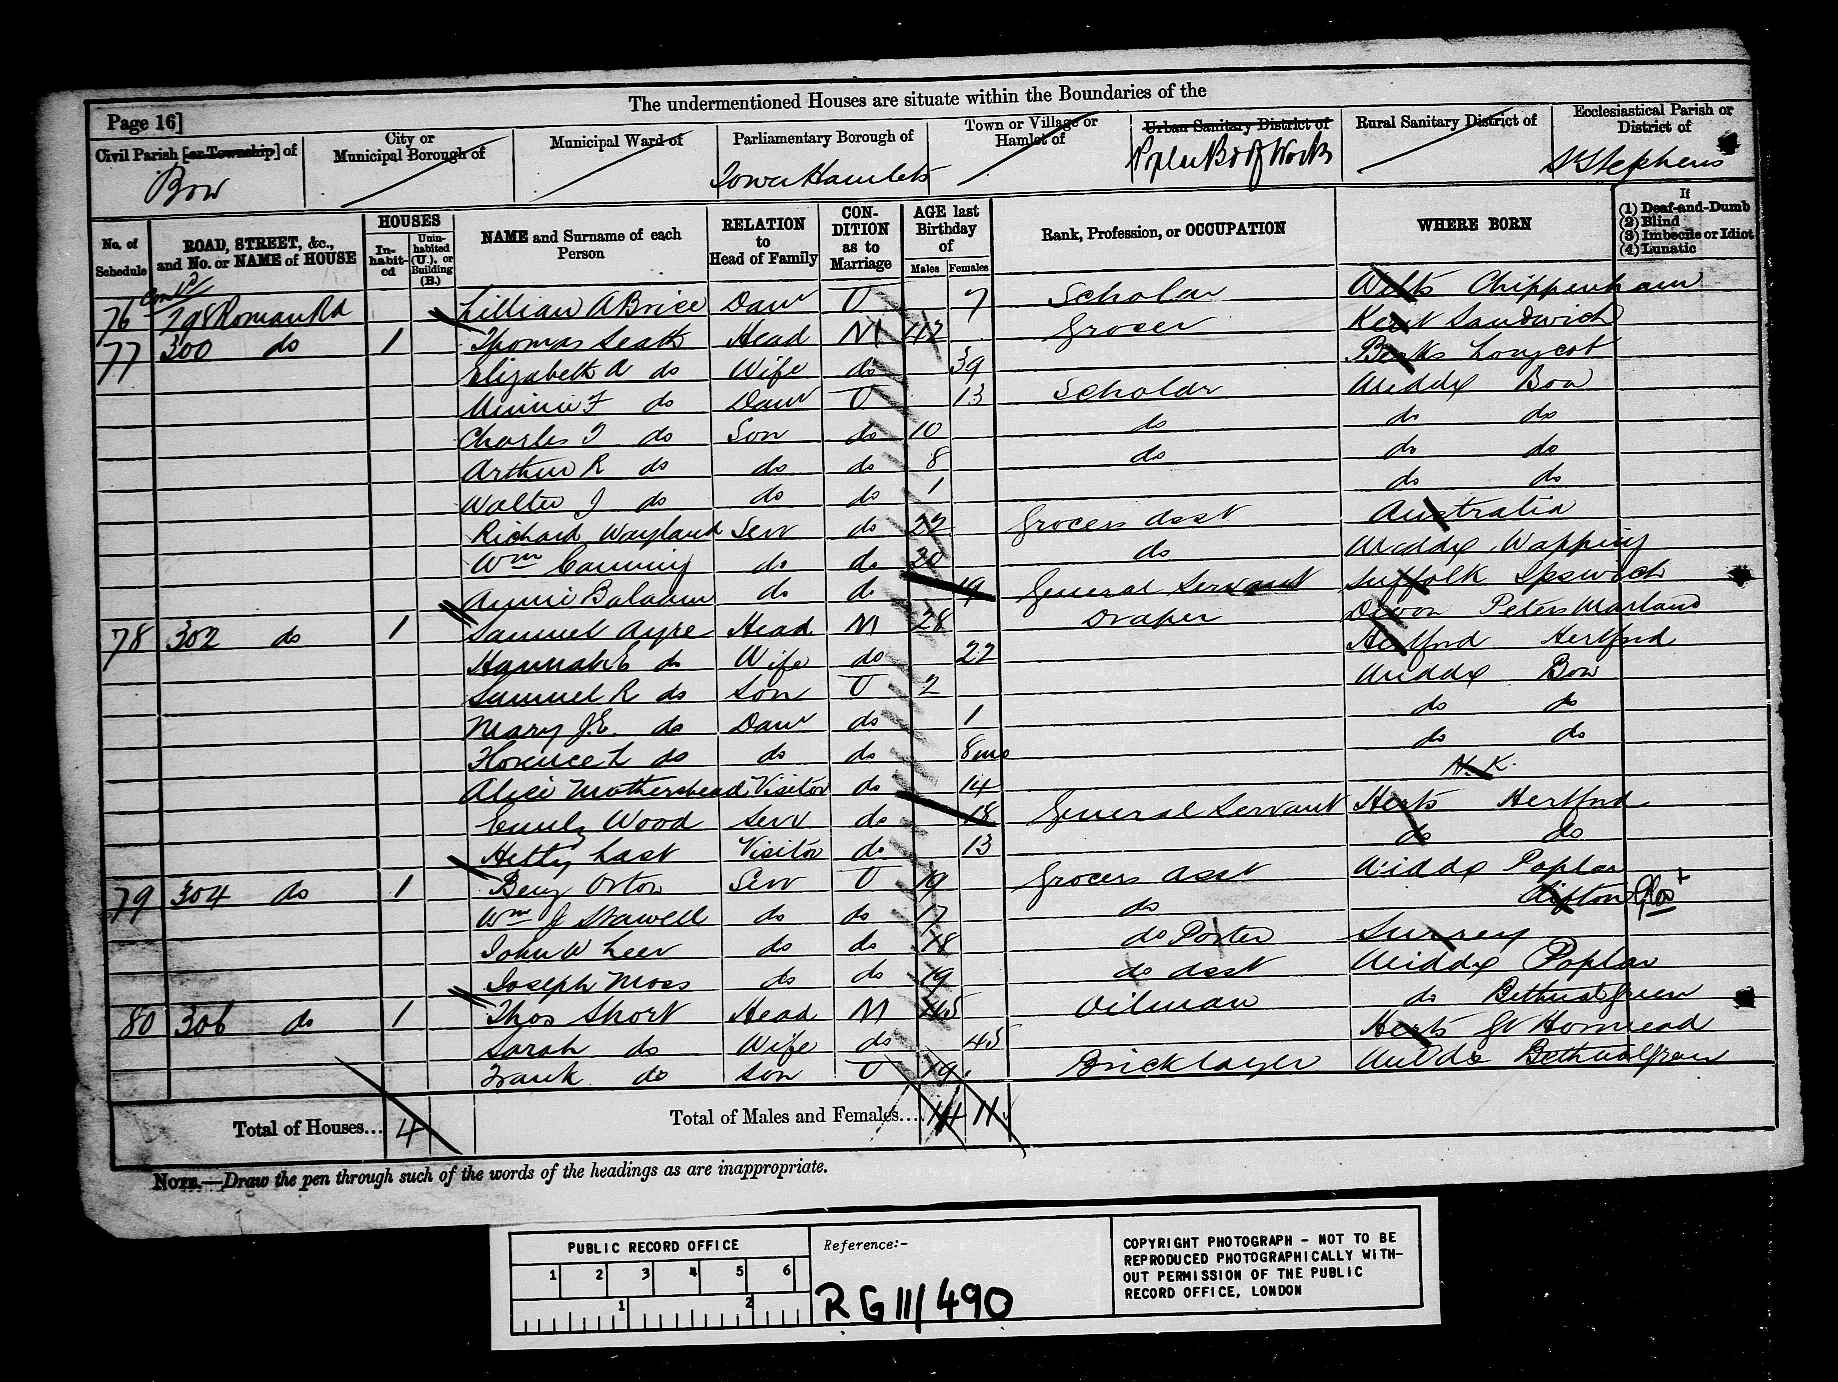 The undermentioned Houses are situate within the Boundaries of the
Page 16]
Civil Parish [or Township] of
Bow
City or Municipal Borough of
Municipal Ward of
Parliamentary Borough of
Tower Hamlets
Town or Village or Hamlet of
Urban Sanitary District of
Poplar Bd of Works
Rural Sanitary District of
Ecclesiastical Parish or District of
St Stephens
No. of Schedule
ROAD, STREET, &c., and No. or NAME of HOUSE
HOUSES
In-habit-ed
Unin-habited (U.), or Building (B.)
NAME and Surname of each Person
RELATION to Head of Family
CON-DITION as to Marriage
AGE last Birthday of
Males Females
Rank, Profession, or OCCUPATION
WHERE BORN
If
(1) Deaf-and-Dumb
(2) Blind
(3) Imbecile or Idiot
(4) Lunatic
76 Contd 298 Roman Rd Lillian A Brice Daur U 7 Scholar Wilts Chippenham
77 300 do 1 Thomas Seath Head M 42 Grocer Kent Sandwich
Elizabeth A do Wife do 39 Berks Longcot
Minnie F do Daur U 13 Scholar Middx Bow
Charles T do Son do 10 do do do
Arthur R do do do 8 do do do
Walter J do do do 1 do do
Richard Wayland Serv do 22 Grocers Asst Australia
Wm Canning do do 20 do Middx Wapping
Annie Balaam do do 19 General Servant Suffolk Ipswich
78 302 do 1 Samuel Ayre Head M 28 Draper Devon Peters Marland
Hannah E do Wife do 22 Hertford Hertford
Samuel R do Son U 2 Middx Bow
Mary J.E. do Daur do 1 do do
Florence L do do do 8 mo do do
Alice Mothershead Visitor do 14 N.K.
Emily Wood Serv do 18 General Servant Herts Hertford
Hetty Last Visitor do 13 do do
79 304 do 1 Benj Orton Serv U 19 Grocers Asst Middx Poplar
Wm J Stawell do do 17 do Clifton Glos
John W Leer do do 18 do Porter Surrey
Joseph Moss do do 19 do Asst Middx Poplar
80 306 do 1 Thos Short Head M 45 Oilman do Bethnal Green
Sarah do Wife do 45 Herts Gt Hormead
Frank do Son U 19 Bricklayer Middx Bethnal Green
Total of Houses... 4 Total of Males and Females.... 14 11
NOTE.—Draw the pen through such of the words of the headings as are inappropriate.
PUBLIC RECORD OFFICE
1 2 3 4 5 6
1 2
Reference:-
RG 11/490
COPYRIGHT PHOTOGRAPH - NOT TO BE
REPRODUCED PHOTOGRAPHICALLY WITH-
OUT PERMISSION OF THE PUBLIC
RECORD OFFICE, LONDON